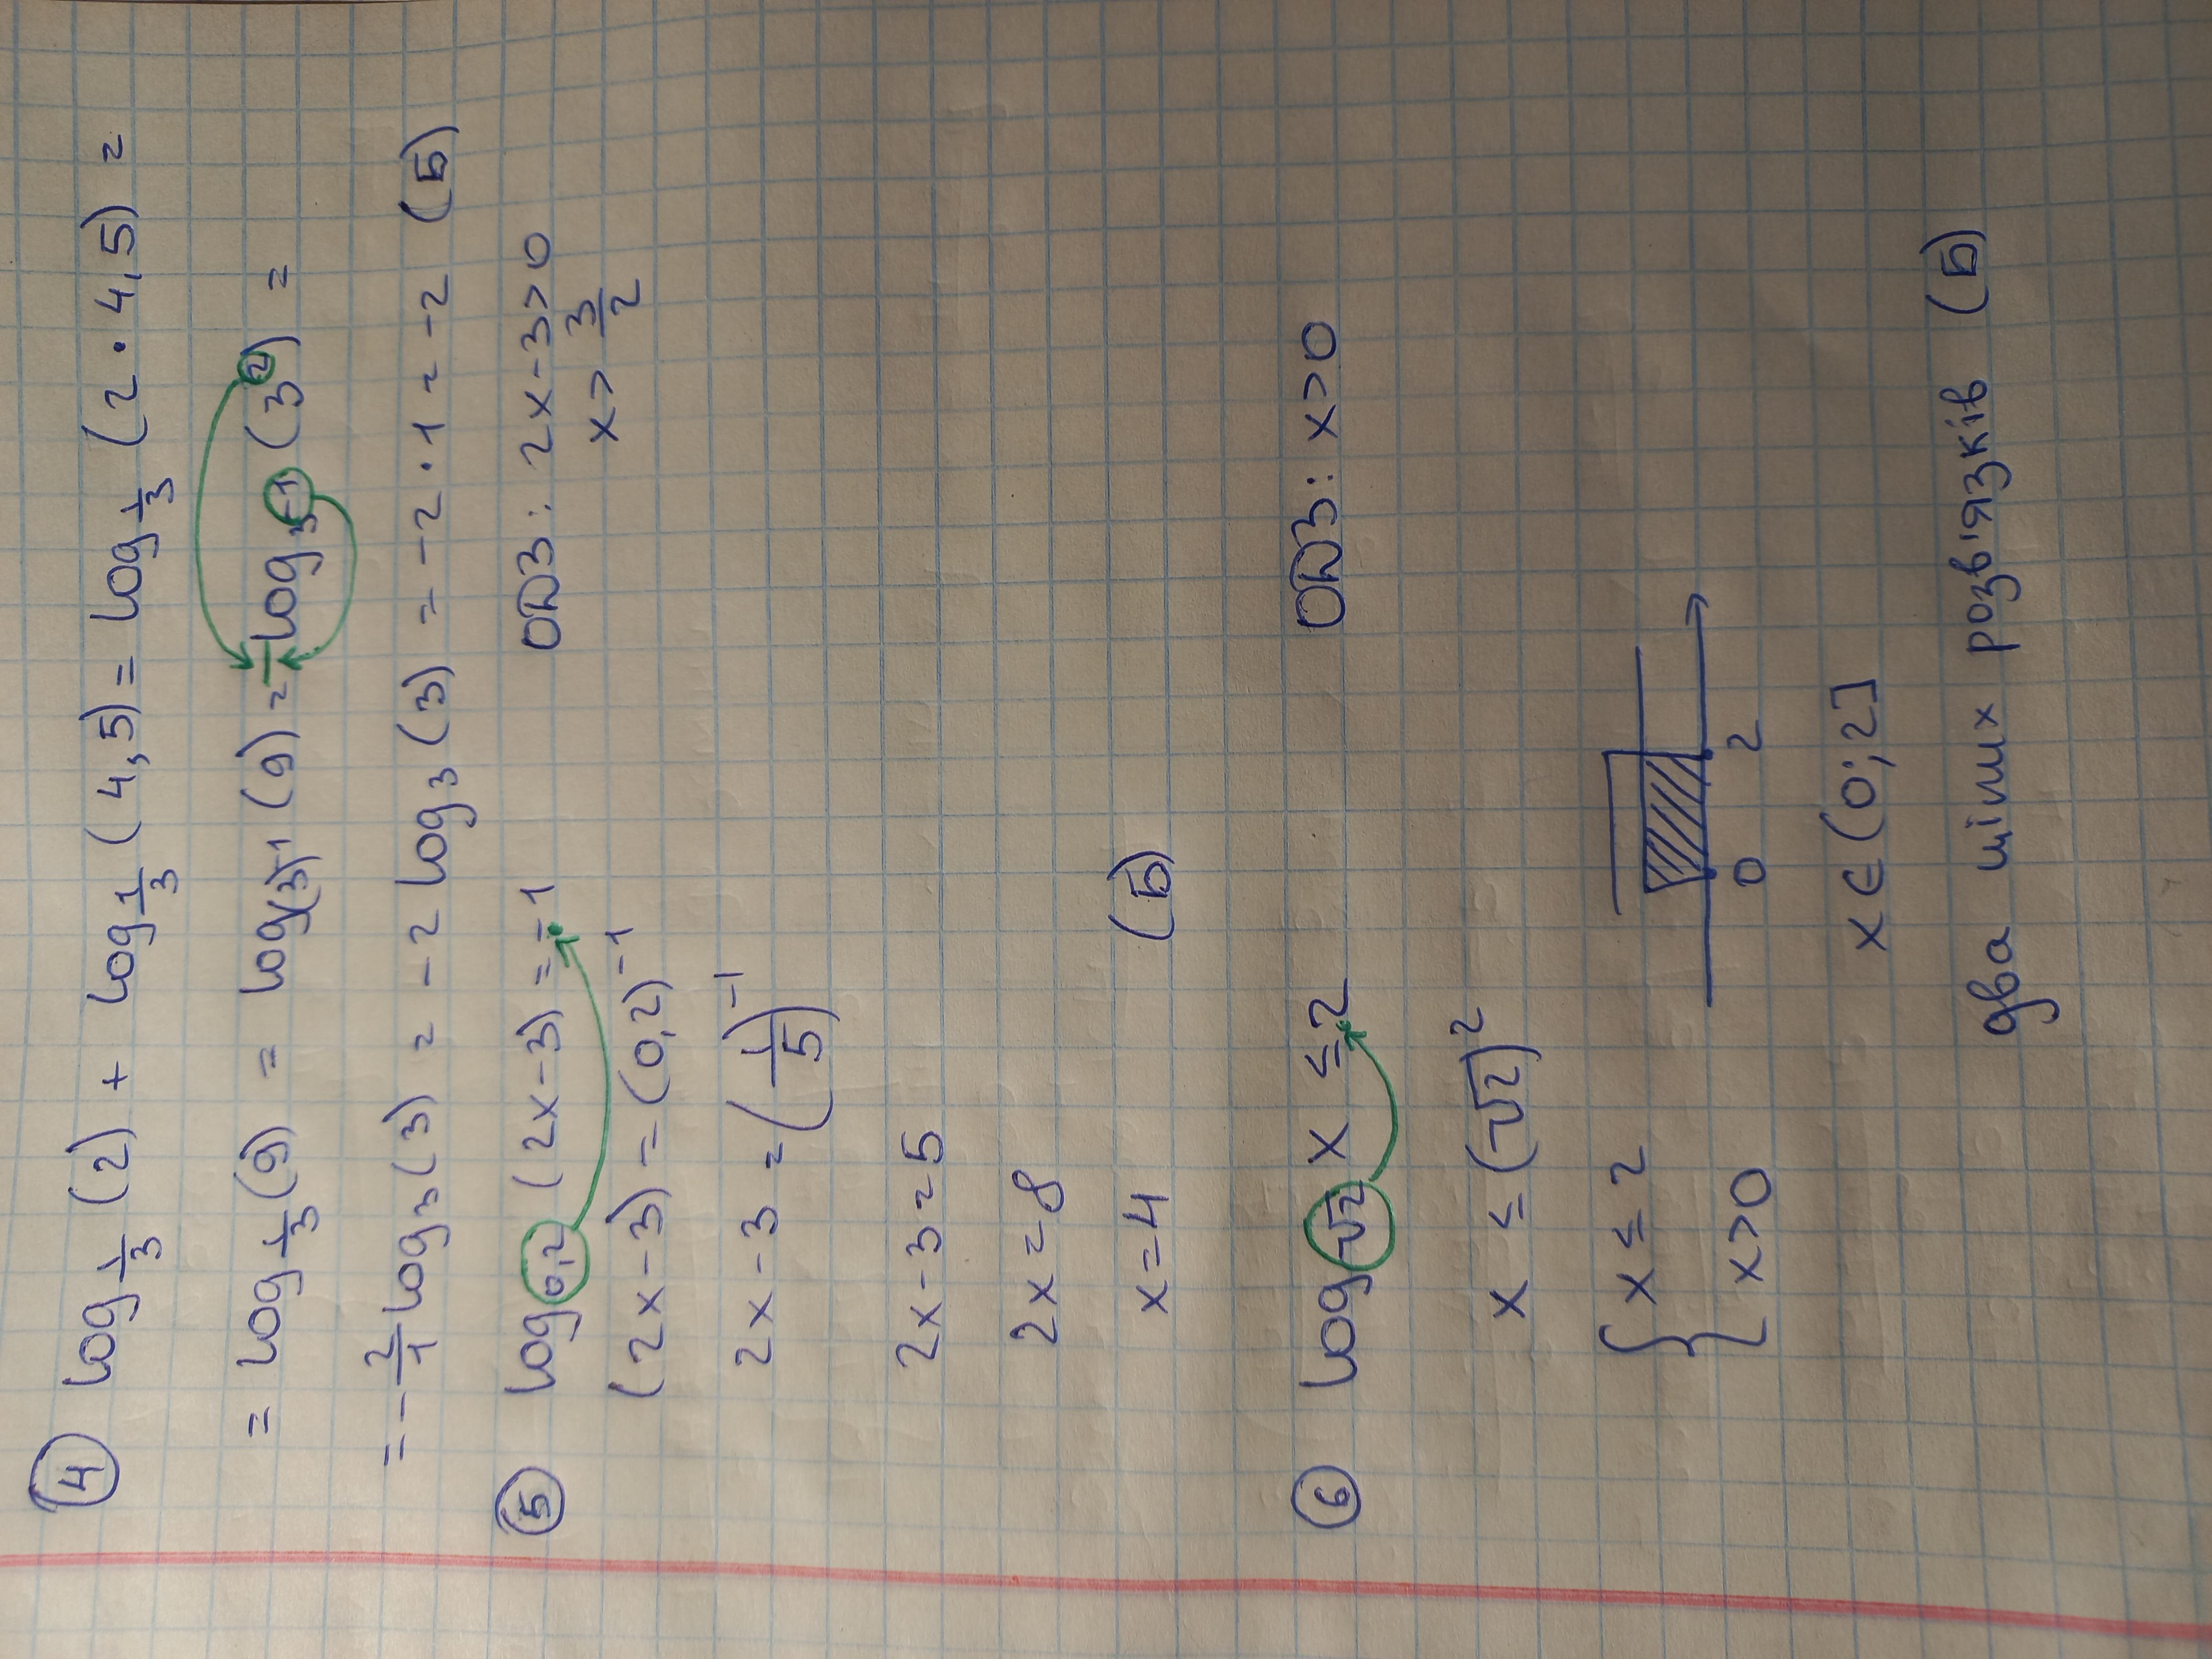 ④ log 1/3 (2) + log 1/3 (4,5) = log 1/3 (2 · 4,5) =
= log 1/3 (9) = log(3)⁻¹ (9) = - log 3⁻¹ (3²) =
= - 2/1 log₃(3) = -2 log₃(3) = -2 · 1 = -2 (Б)
⑤ log 0,2 (2x-3) = -1 ОДЗ: 2x-3>0
(2x-3) = (0,2)⁻¹ x> 3/2
2x-3 = (1/5)⁻¹
2x-3=5
2x=8
x=4 (Б)
⑥ log √2 x ≤ 2 ОДЗ: x>0
x ≤ (√2)²
{ x ≤ 2
x>0
0 2
x ∈ (0;2]
два цілих розв'язків (Б)